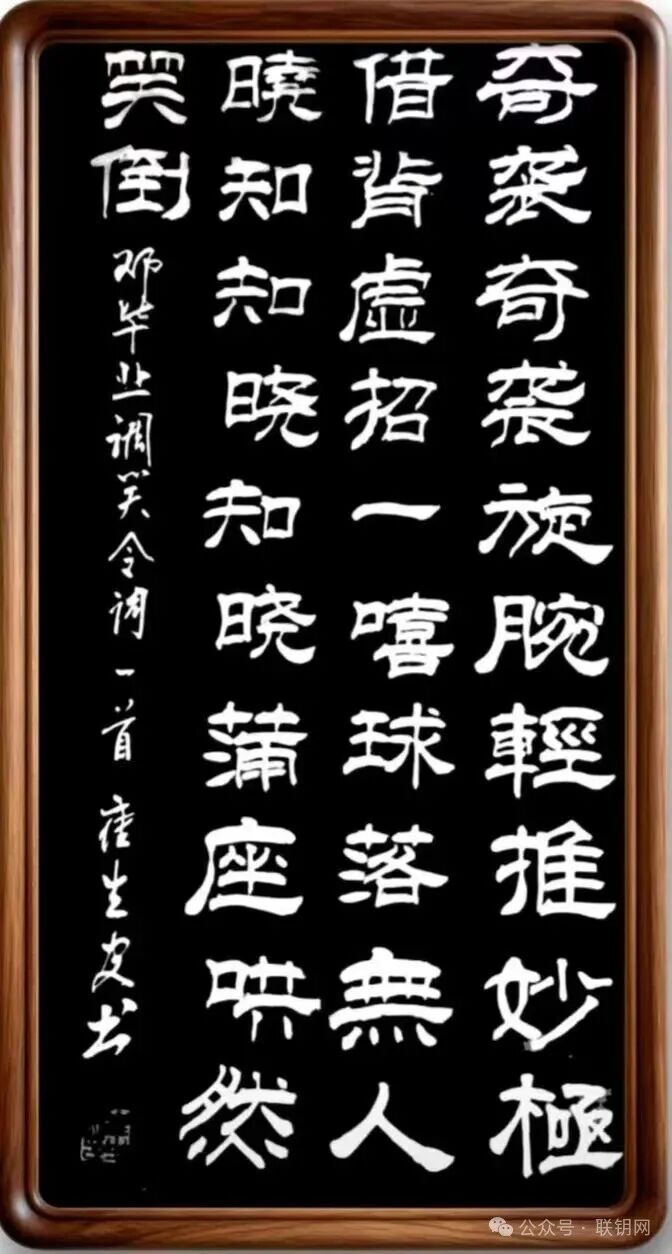 奇袭奇袭旋腕輕推妙極
借背虛招一嘻球落無人
曉知知晓知晓蒲座哄然
笑倒
邓毕业调笑令词一首 生安书
公众号 · 联钥网